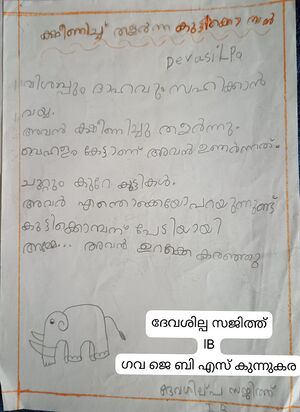 ക്ഷീണിച്ച് തളർന്ന കുട്ടിക്കൊമ്പൻ
Devasilpa
വിശപ്പും ദാഹവും സഹിക്കാൻ
വയ്യ.
അവൻ ക്ഷീണിച്ചു തളർന്നു.
ബഹളം കേട്ടാണ് അവൻ ഉണർന്നത്.
ചുറ്റും കുറേ കുട്ടികൾ.
അവർ എന്തൊക്കെയോ പറയുന്നുണ്ട്
കുട്ടിക്കൊമ്പന് പേടിയായി
അമ്മേ... അവൻ ഉറക്കെ കരഞ്ഞു
ദേവശില്പ സജിത്ത്
IB
ഗവ ജെ ബി എസ് കുന്നുകര
ദേവശില്പ സജിത്ത്